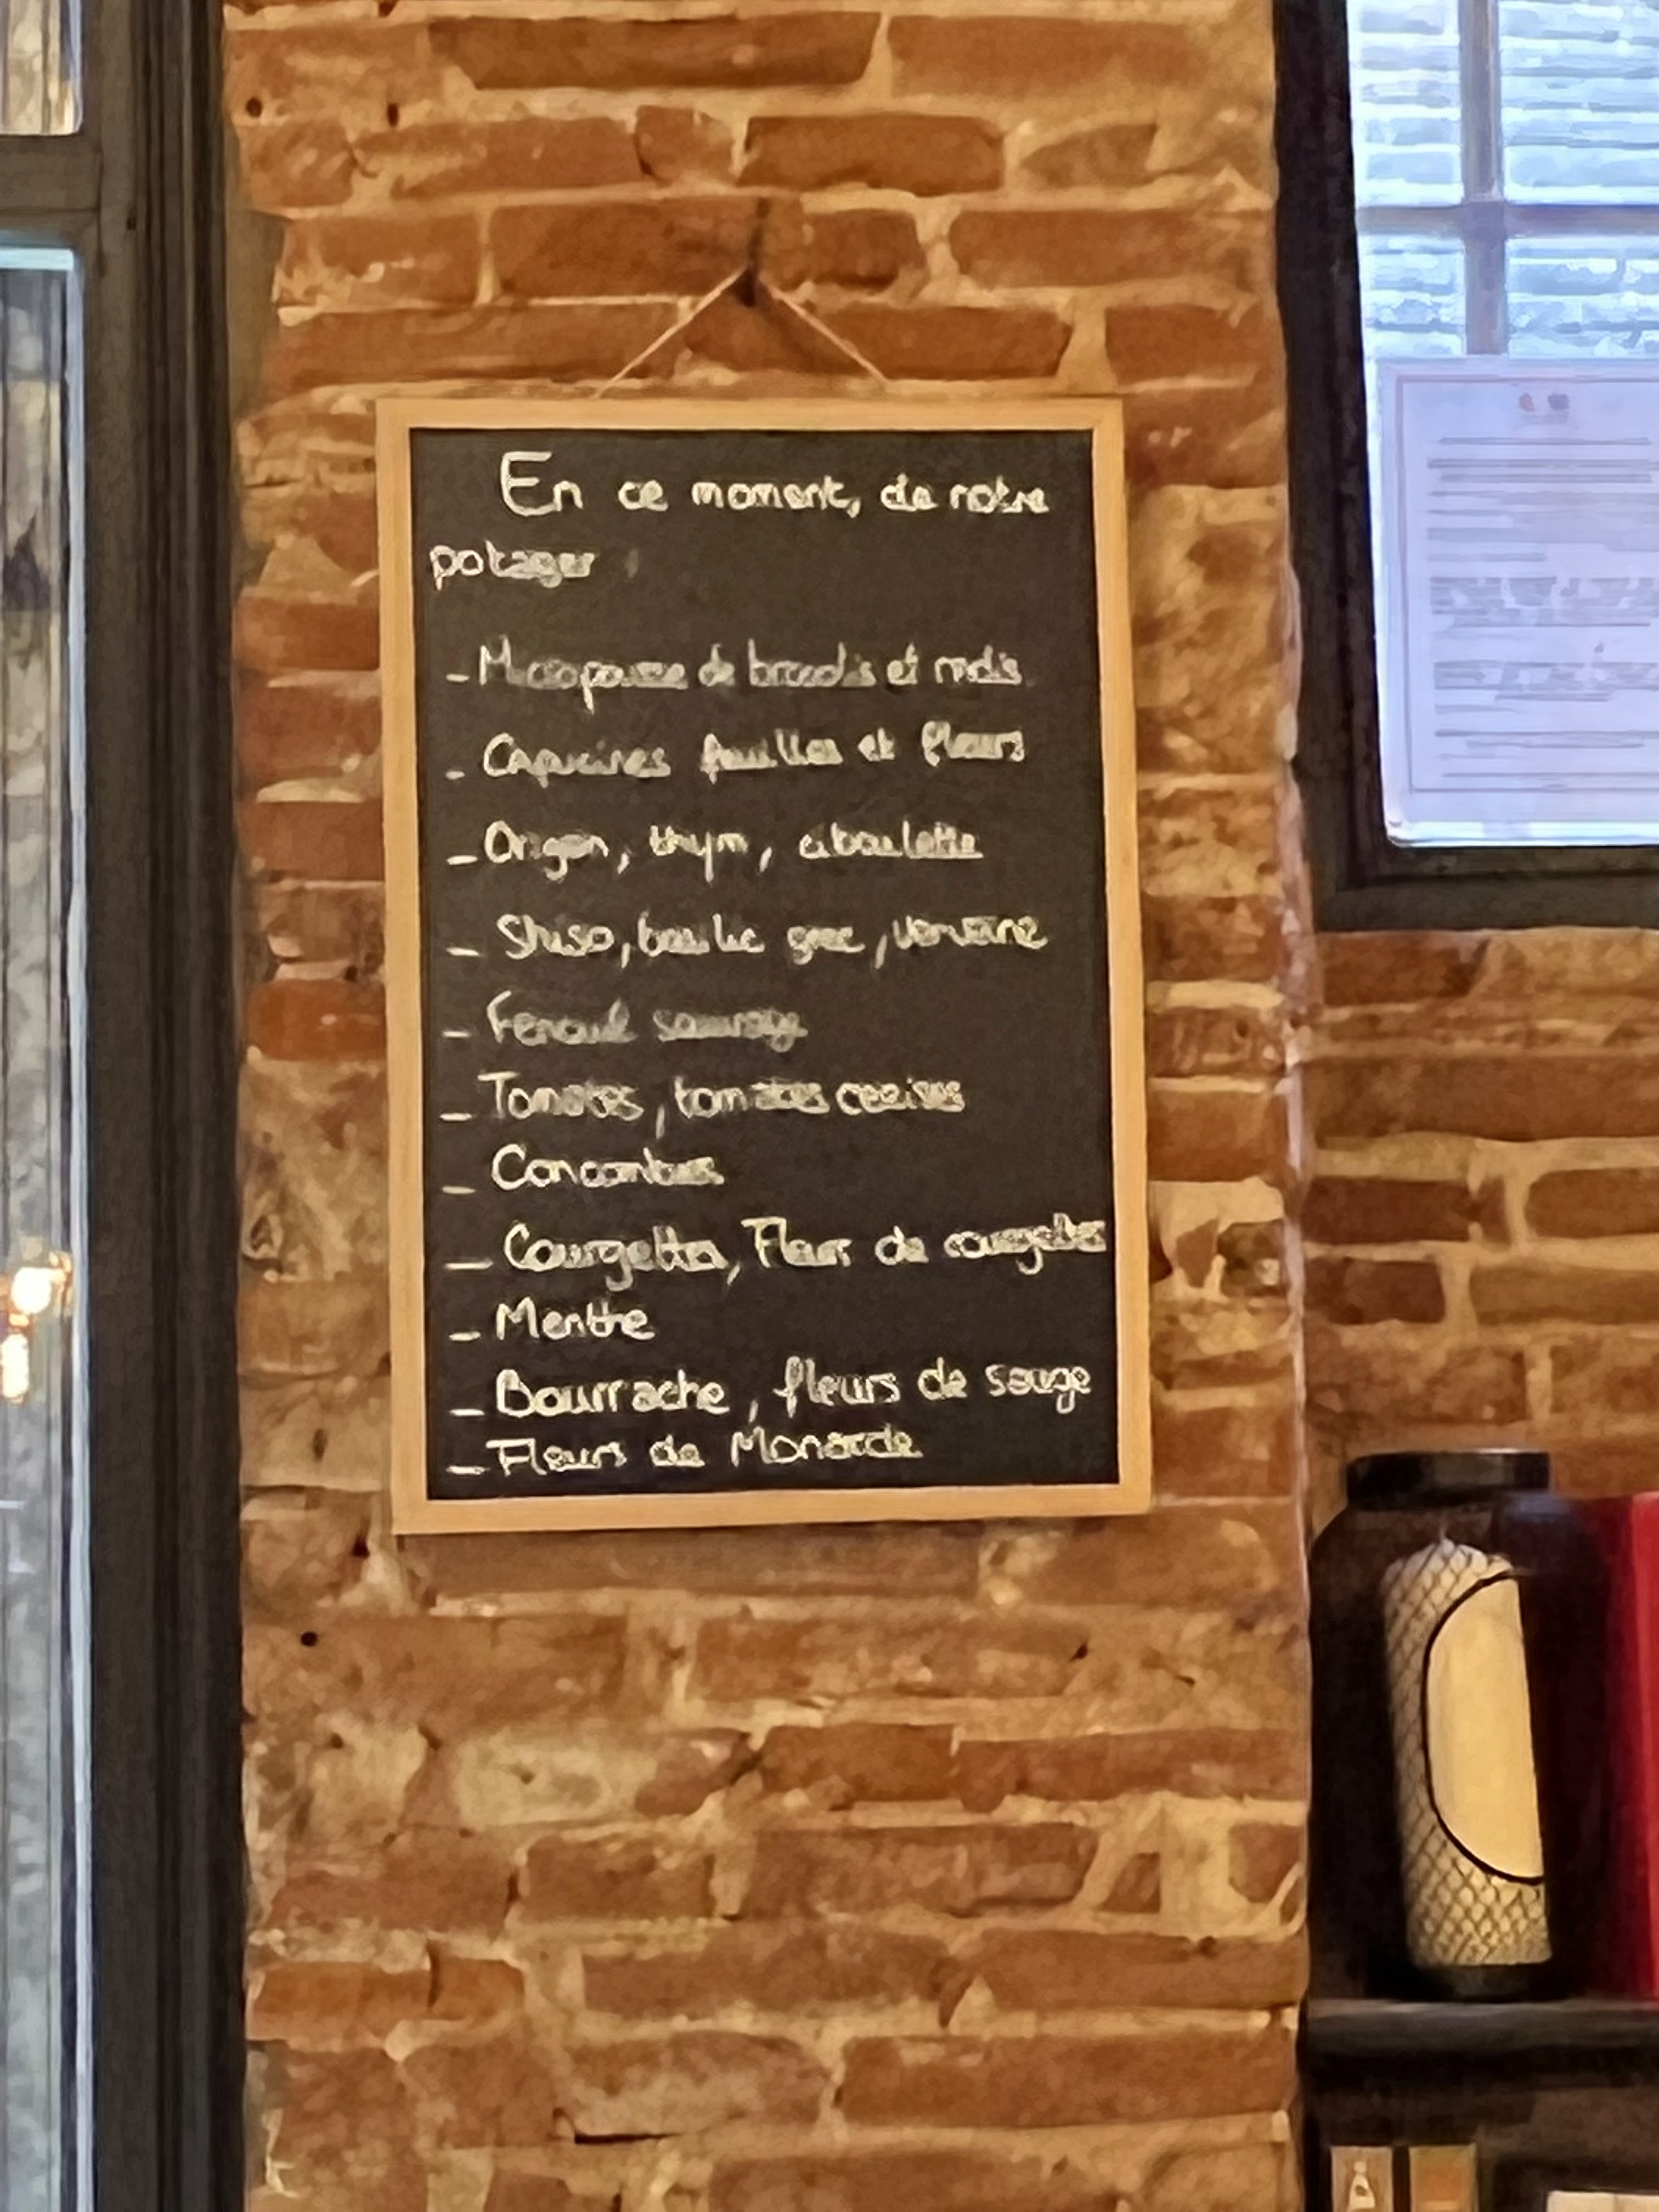 En ce moment, de notre
potager
- Micropousse de brocolis et radis
- Capucines feuilles et fleurs
- Origan, thym, ciboulette
- Shiso, basilic grec, verveine
- Fenouil sauvage
- Tomates, tomates cerises
- Concombres
- Courgettes, Fleur de courgettes
- Menthe
- Bourrache, fleurs de sauge
- Fleurs de Monarde